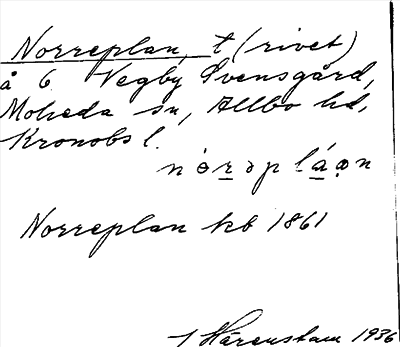 Norreplan, t (rivet)
å 6 Vegby Svensgård,
Moheda sn, Allbo hd,
Kronobs l.
Norreplan hb 1861
Härenstam 1936